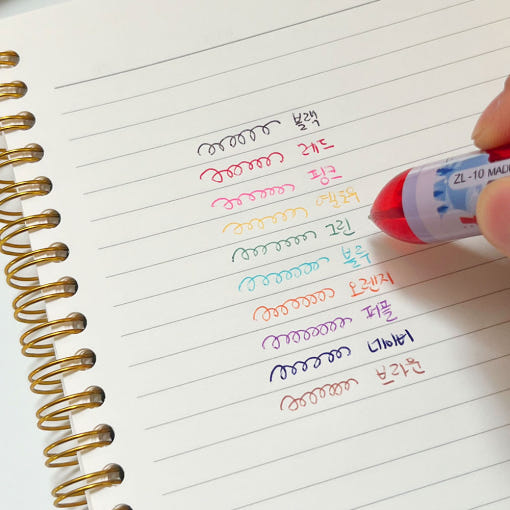 블랙
레드
핑크
옐로우
그린
블루
오렌지
퍼플
네이비
브라운
ZL-10 MADE